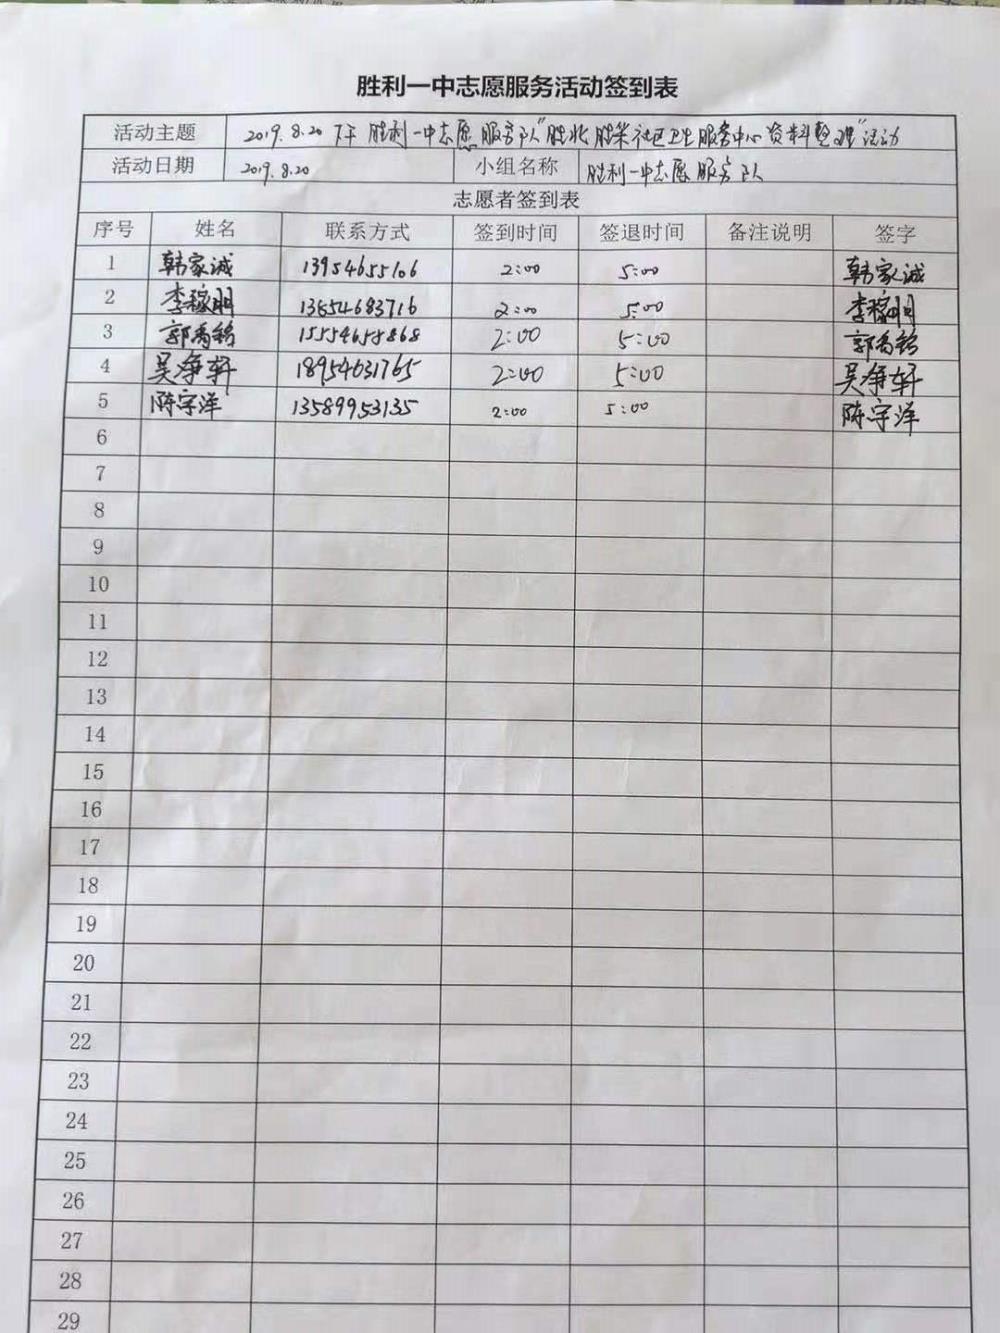 胜利一中志愿服务活动签到表
活动主题 2019.8.20 下午 胜利一中志愿服务队"胜北胜采社区卫生服务中心资料整理"活动
活动日期 2019.8.20 小组名称 胜利一中志愿服务队
志愿者签到表
序号 姓名 联系方式 签到时间 签退时间 备注说明 签字
1 韩家诚 13954655106 2:00 5:00 韩家诚
2 李稼明 13854683716 2:00 5:00 李稼明
3 郭禹铭 15554658868 2:00 5:00 郭禹铭
4 吴净轩 18954631765 2:00 5:00 吴净轩
5 陈宇洋 13589953135 2:00 5:00 陈宇洋
6
7
8
9
10
11
12
13
14
15
16
17
18
19
20
21
22
23
24
25
26
27
28
29